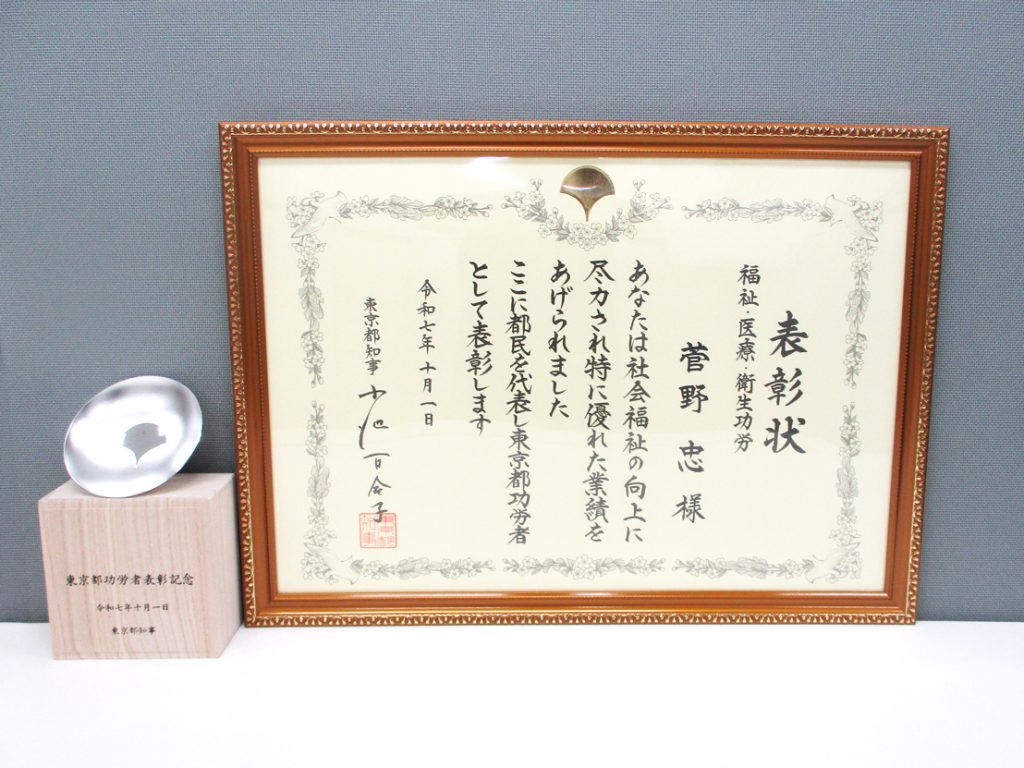 表彰状
福祉・医療・衛生功労
菅野忠様
あなたは社会福祉の向上に
尽力され特に優れた業績を
あげられました
ここに都民を代表し東京都功労者
として表彰します
令和七年十月一日
東京都知事 小池百合子
東京都功労者表彰記念
令和七年十月一日
東京都知事